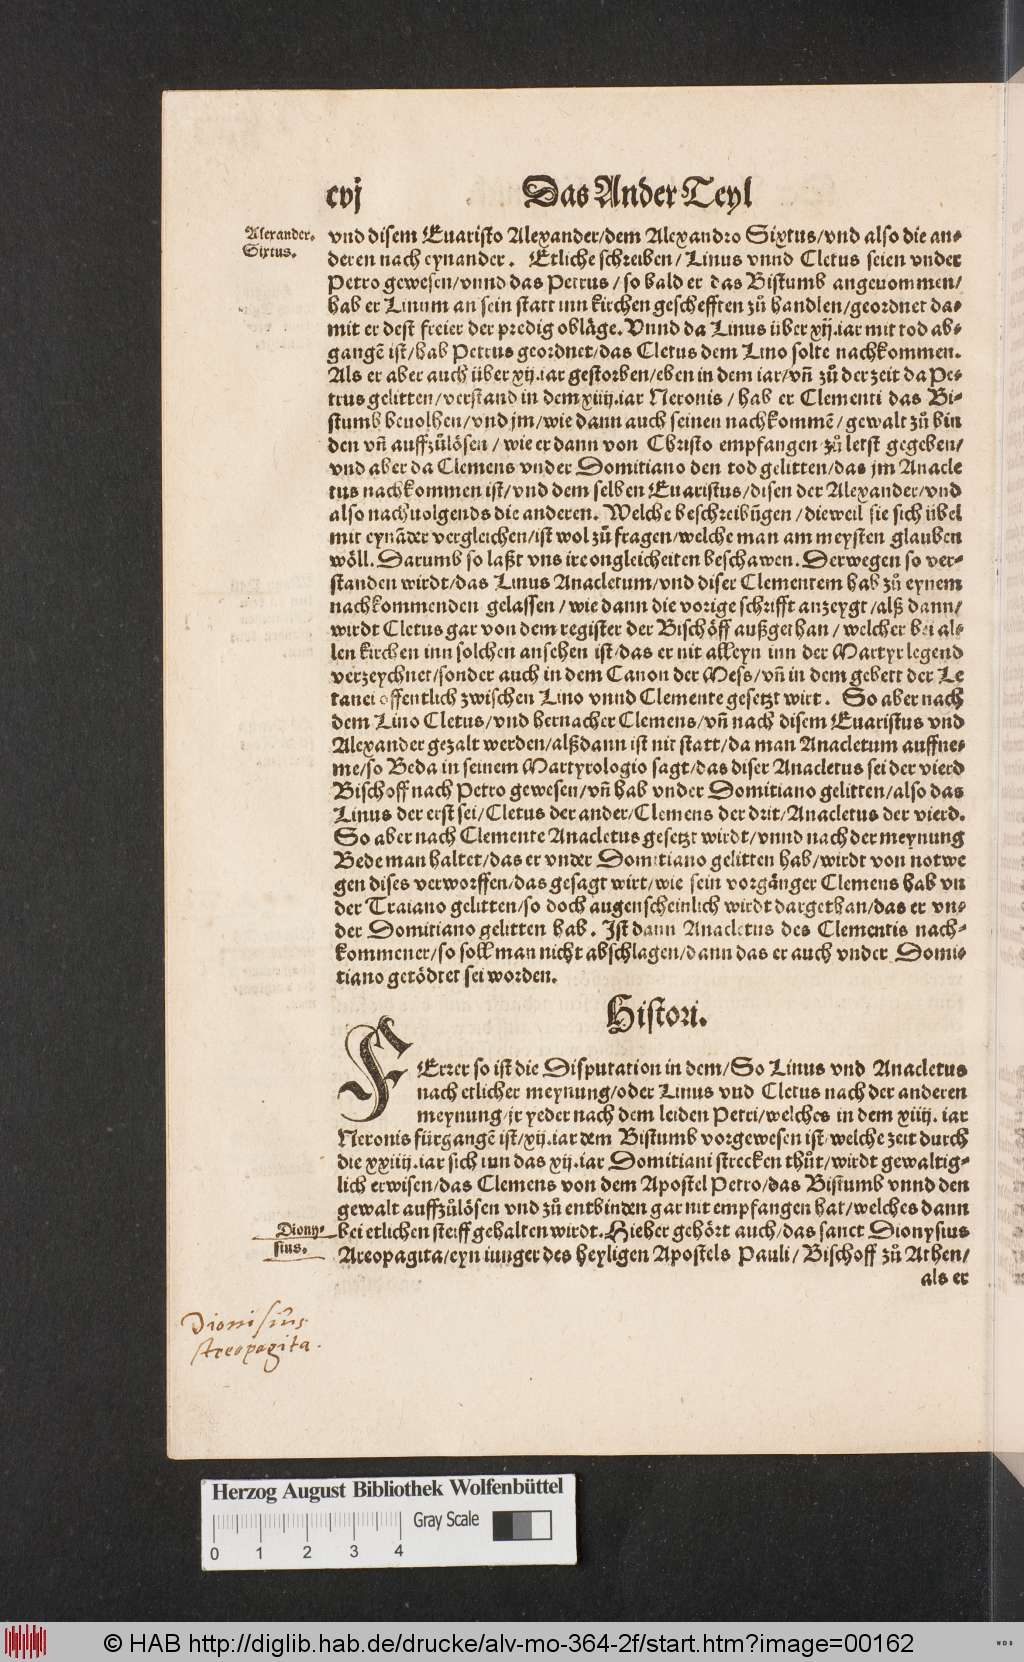 cvj Das Ander Teyl
Alexander.
Sixtus.
vnd disem Euaristo Alexander/dem Alexandro Sixtus/vnd also die an⸗
deren nach eynander. Etliche schreiben/Linus vnnd Cletus seien vnder
Petro gewesen/vnnd das Petrus/so bald er das Bistumb angenommen/
hab er Linum an sein statt inn kirchen geschefften zů handlen/geordnet da⸗
mit er dest freier der predig obläge. Vnnd da Linus über xij.iar mit tod ab⸗
gangẽ ist/hab Petrus geordnet/das Cletus dem Lino solte nachkommen.
Als er aber auch über xij.iar gestorben/eben in dem iar/vñ zů der zeit da Pe⸗
trus gelitten/verstand in dem xiiij.iar Neronis/hab er Clementi das Bi⸗
stumb beuolhen/vnd jm/wie dann auch seinen nachkommẽ/gewalt zů bin
den vñ auffzůlösen/wie er dann von Christo empfangen zů letst gegeben/
vnd aber da Clemens vnder Domitiano den tod gelitten/das jm Anacle
tus nachkommen ist/vnd dem selben Euaristus/disen der Alexander/vnd
also nachuolgends die anderen. Welche beschreibũgen/dieweil sie sich übel
mit eynãder vergleichen/ist wol zů fragen/welche man am meysten glauben
wöll. Darumb so laßt vns ire ongleicheiten beschawen. Derwegen so ver⸗
standen wirdt/das Linus Anacletum/vnd diser Clementem hab zů eynem
nachkommenden gelassen/wie dann die vorige schrifft anzeygt/alß dann/
wirdt Cletus gar von dem register der Bischöff außgethan/welcher bei al⸗
len kirchen inn solchen ansehen ist/das er nit alleyn inn der Martyr legend
verzeychnet/sonder auch in dem Canon der Mess/vñ in dem gebett der Le
tanei offentlich zwischen Lino vnnd Clemente gesetzt wirt. So aber nach
dem Lino Cletus/vnd hernacher Clemens/vñ nach disem Euaristus vnd
Alexander gezalt werden/alßdann ist nit statt/da man Anacletum auffne⸗
me/so Beda in seinem Martyrologio sagt/das diser Anacletus sei der vierd
Bischoff nach Petro gewesen/vñ hab vnder Domitiano gelitten/also das
Linus der erst sei/Cletus der ander/Clemens der drit/Anacletus der vierd.
So aber nach Clemente Anacletus gesetzt wirdt/vnnd nach der meynung
Bede man haltet/das er vnder Domitiano gelitten hab/wirdt von notwe
gen dises verworffen/das gesagt wirt/wie sein vorgänger Clemens hab vn
der Traiano gelitten/so doch augenscheinlich wirdt dargethan/das er vn⸗
der Domitiano gelitten hab. Ist dann Anacletus des Clementis nach⸗
kommener/so soll man nicht abschlagen/dann das er auch vnder Domi⸗
tiano getödtet sei worden.
Histori.
FErrer so ist die Disputation in dem/So Linus vnd Anacletus
nach etlicher meynung/oder Linus vnd Cletus nach der anderen
meynung/jr yeder nach dem leiden Petri/welches in dem xiiij. iar
Neronis fürgangẽ ist/xij.iar dem Bistumb vorgewesen ist/welche zeit durch
die xxiiij.iar sich inn das xij.iar Domitiani strecken thůt/wirdt gewaltig⸗
lich erwisen/das Clemens von dem Apostel Petro/das Bistumb vnnd den
gewalt auffzůlösen vnd zů entbinden gar nit empfangen hat/welches dann
bei etlichen steiff gehalten wirdt. Hieher gehört auch/das sanct Dionysius
Areopagita/eyn iunger des heyligen Apostels Pauli/Bischoff zů Athen/
als er
Diony⸗
sius.
Dionisius
Areopagita.
Herzog August Bibliothek Wolfenbüttel
Gray Scale
0 1 2 3 4
© HAB http://diglib.hab.de/drucke/alv-mo-364-2f/start.htm?image=00162